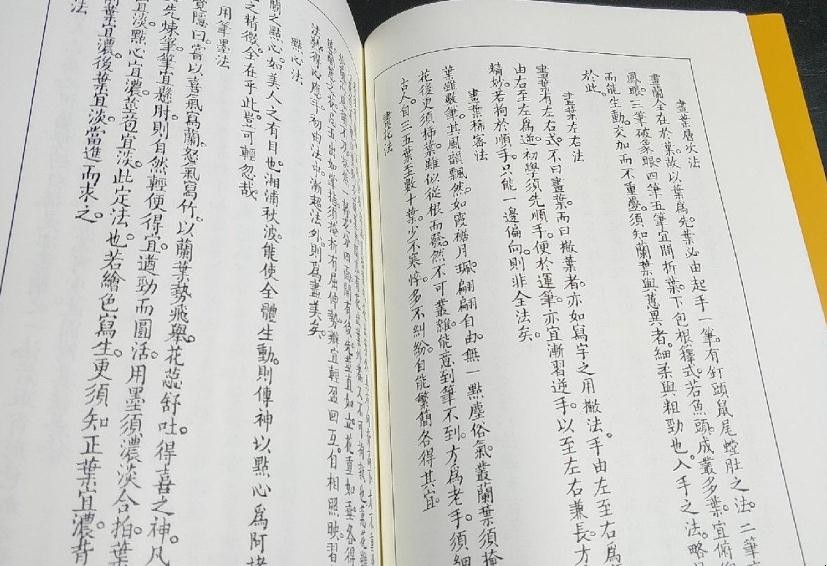 畫葉層次法
畫蘭全在於葉。故以葉為先。葉必由起手一筆。有釘頭鼠尾螳肚之法。二筆
鳳眼。三筆破象眼。四筆五筆宜間折葉。下包根籜式。若魚頭。成叢多葉。宜俯仰
而能生動。交加而不重疊。須知蘭葉與蕙異者。細柔與粗勁也。入手之法。略
於此。
畫葉左右法
畫葉有左右式。不曰畫葉。而曰撇葉者。亦如寫字之用撇法。手由左至右為
由右至左為逆。初學須先順手。便於運筆。亦宜漸習逆手。以至左右兼長。方
精妙。若拘於順手。只能一邊偏向。則非全法矣。
畫葉稀密法
葉雖數筆。其風韻飄然。如霞裾月珮。翩翩自由。無一點塵俗氣。叢蘭葉須掩
花後更須插葉。雖似從根而發。然不可叢雜。能意到筆不到。方為老手。須細
古人。自三五葉至數十葉。少不寒悴。多不糾紛。自能繁簡各得其宜。
畫花法
法熟得心應手。初由法中。漸超法外。則為盡美矣。
點心法
蘭之點心。如美人之有目也。湘浦秋波。能使全體生動。則傳神以點心為阿堵
之精微。全在乎此。豈可輕忽哉。
用筆墨法
覺隱曰。嘗以喜氣寫蘭。怒氣寫竹。以蘭葉勢飛舉。花蕊舒吐。得喜之神。凡
先煉筆。筆宜懸肘。則自然輕便得宜。遒勁而圓活。用墨須濃淡合拍。葉
宜淡。點心宜濃。莖苞宜淡。此定法也。若繪色寫生。更須知正葉宜濃。背
葉宜濃。後葉宜淡。當進而求之。
法